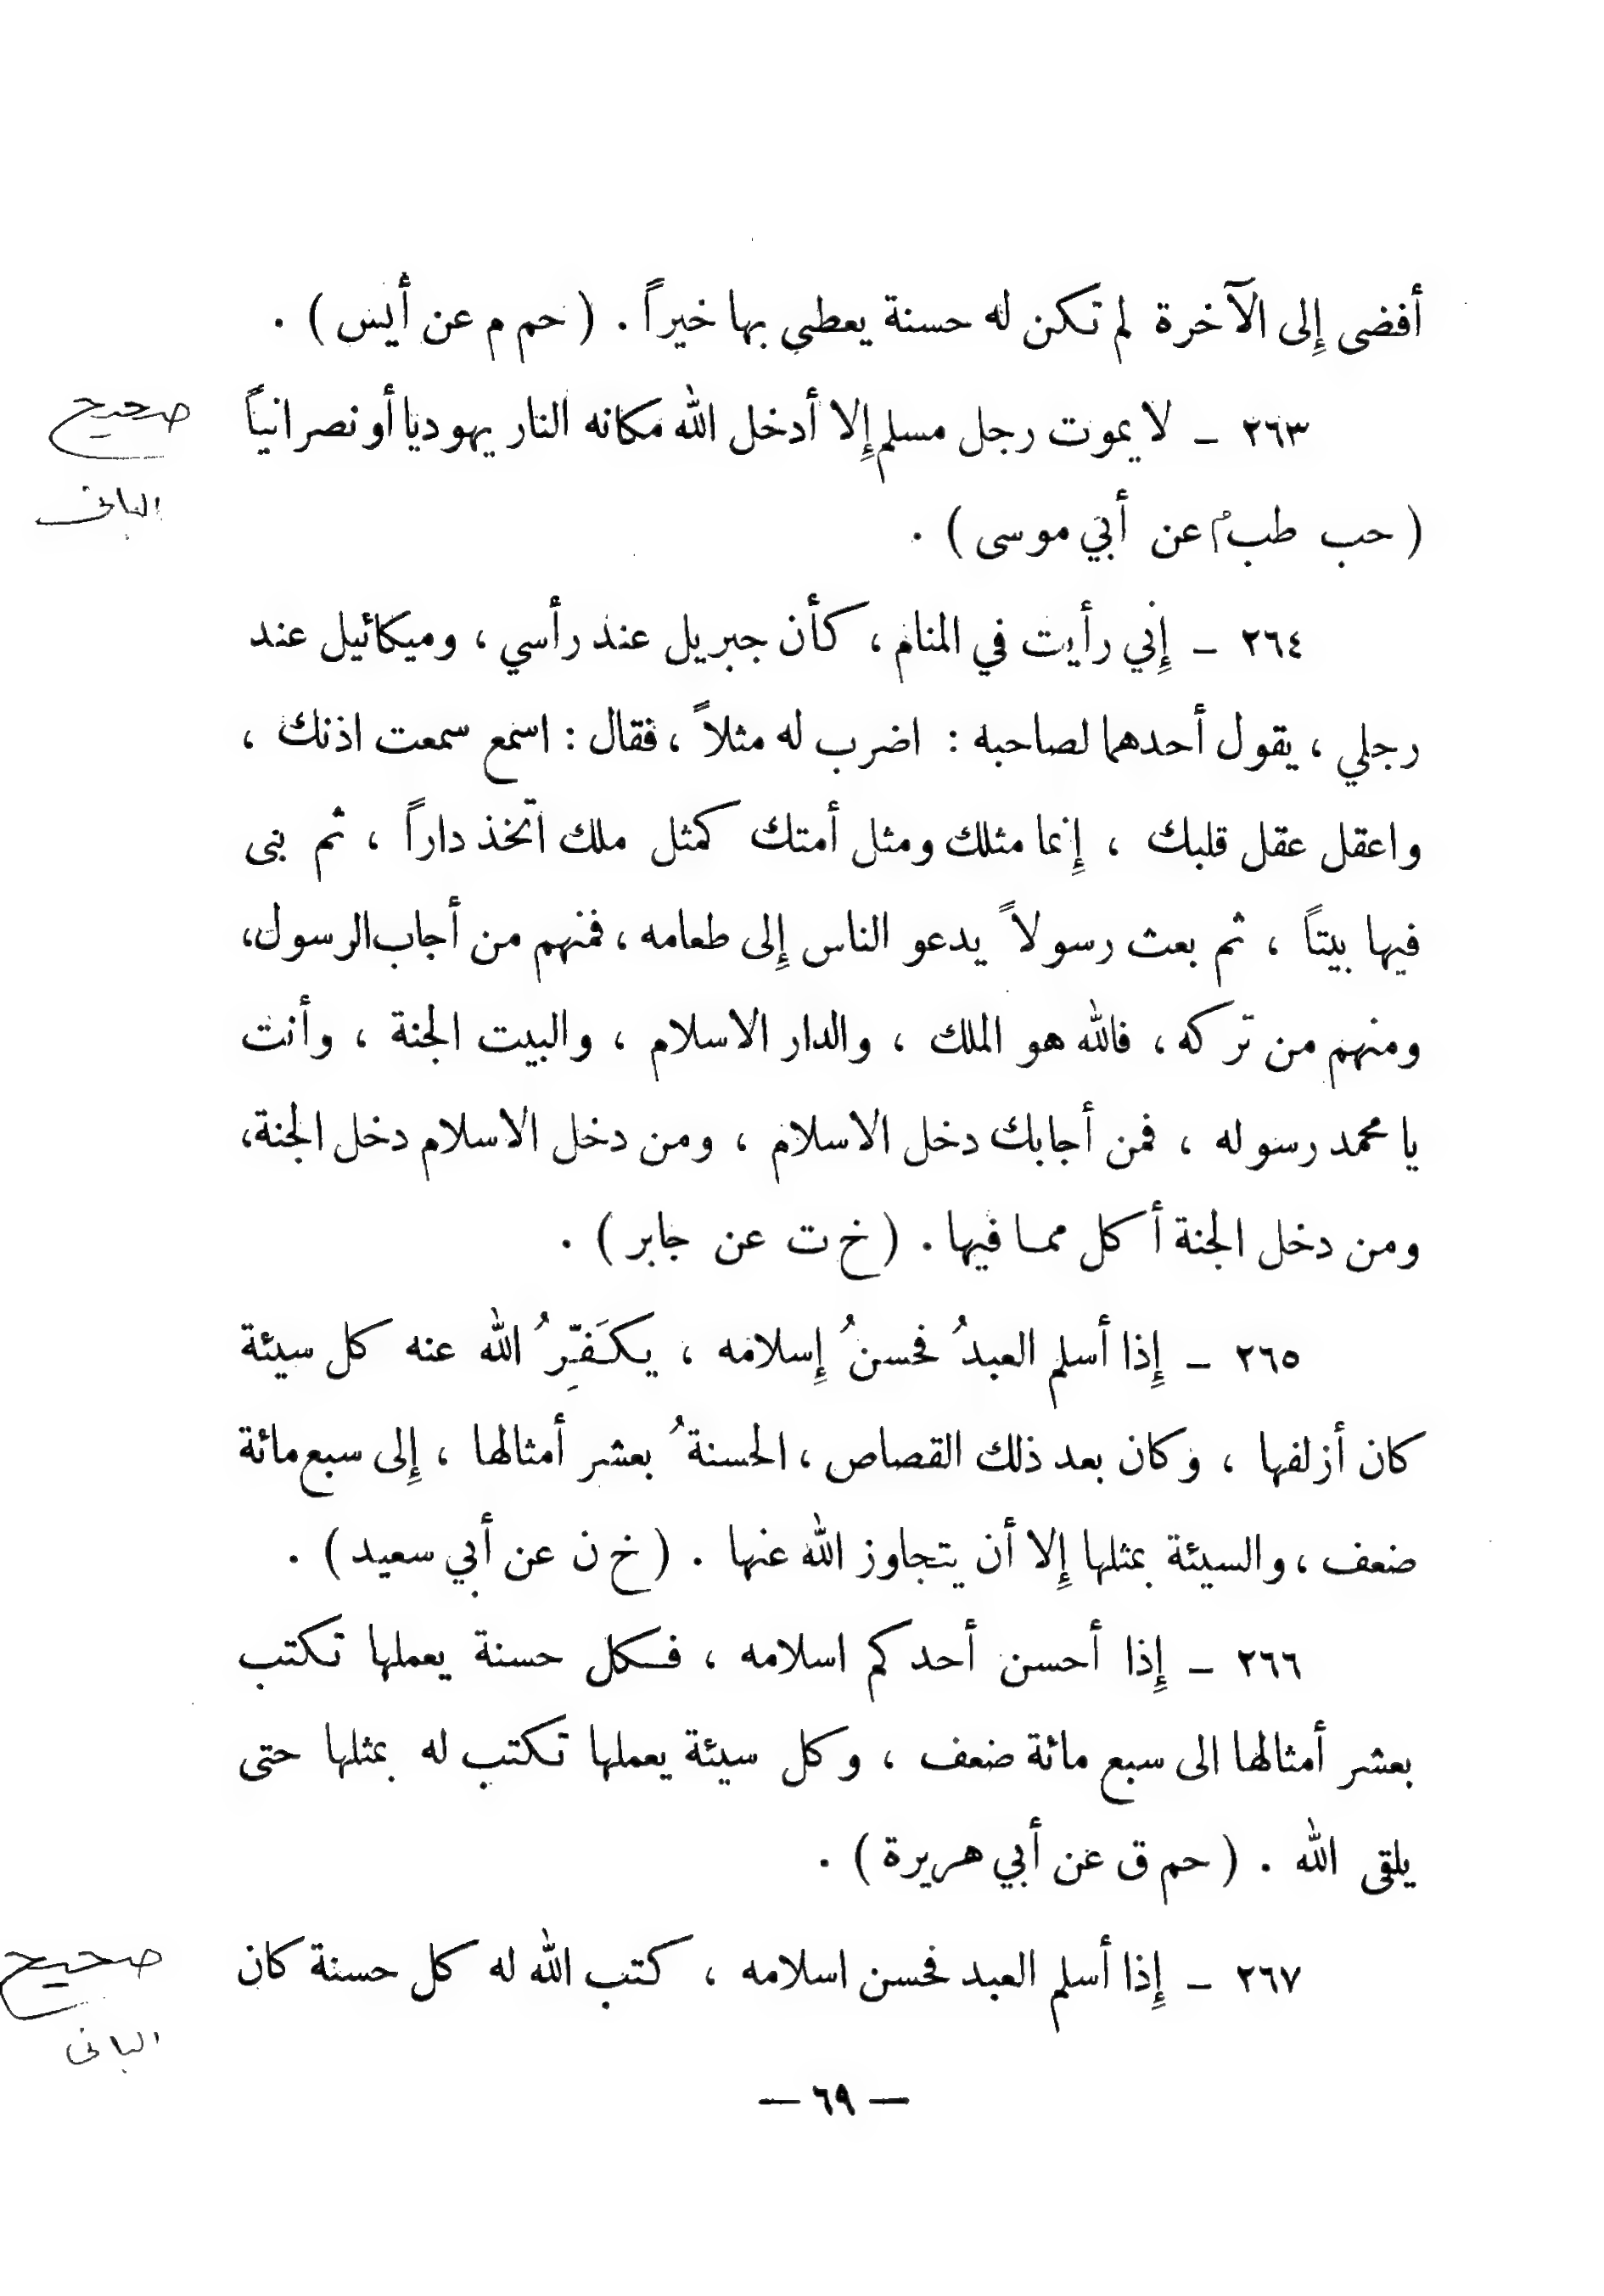 أفضى إِلى الآخرة لم تكن له حسنة يعطى بها خيراً . ( حم م عن أنس ) .
٢٦٣ – لا يموت رجل مسلم إِلا أدخل الله مكانه النار يهوديا أو نصرانياً
صحيح
( حب طب م عن أبي موسى ) .
البانى
٢٦٤ – إِني رأيت في المنام ، كأن جبريل عند رأسي ، وميكائيل عند
رجلي ، يقول أحدهما لصاحبه : اضرب له مثلاً ، فقال : اسمع سمعت اذنك ،
واعقل عقل قلبك ، إِنما مثلك ومثل أمتك كمثل ملك اتخذ داراً ، ثم بنى
فيها بيتاً ، ثم بعث رسولاً يدعو الناس إِلى طعامه ، فمنهم من أجاب الرسول،
ومنهم من تركه ، فالله هو الملك ، والدار الاسلام ، والبيت الجنة ، وأنت
يا محمد رسوله ، فمن أجابك دخل الاسلام ، ومن دخل الاسلام دخل الجنة،
ومن دخل الجنة أكل مما فيها . ( خ ت عن جابر ) .
٢٦٥ – إِذا أسلم العبدُ فحسنُ إِسلامه ، يكَفِّرُ الله عنه كل سيئة
كان أزلفها ، وكان بعد ذلك القصاص ، الحسنةُ بعشر أمثالها ، إِلى سبع مائة
ضعف ، والسيئة بمثلها إِلا أن يتجاوز الله عنها . ( خ ن عن أبي سعيد ) .
٢٦٦ – إِذا أحسن أحدكم اسلامه ، فكل حسنة يعملها تكتب
بعشر أمثالها الى سبع مائة ضعف ، وكل سيئة يعملها تكتب له بمثلها حتى
يلقى الله . ( حم ق عن أبي هريرة ) .
٢٦٧ – إِذا أسلم العبد فحسن اسلامه ، كتب الله له كل حسنة كان
صحيح
البانى
— ٦٩ —